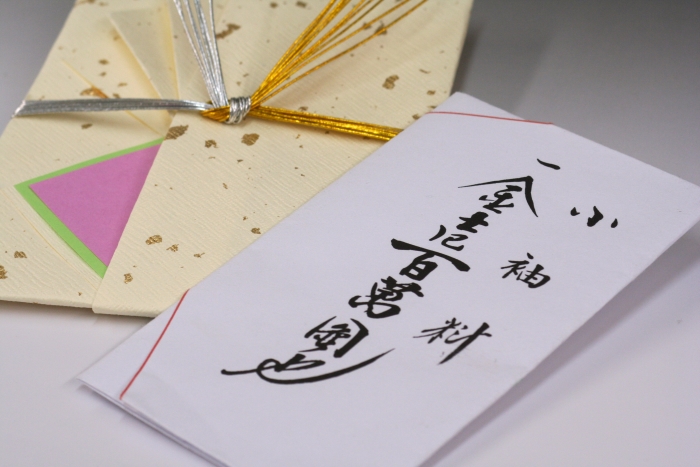 小袖料
一金壱百萬圓也